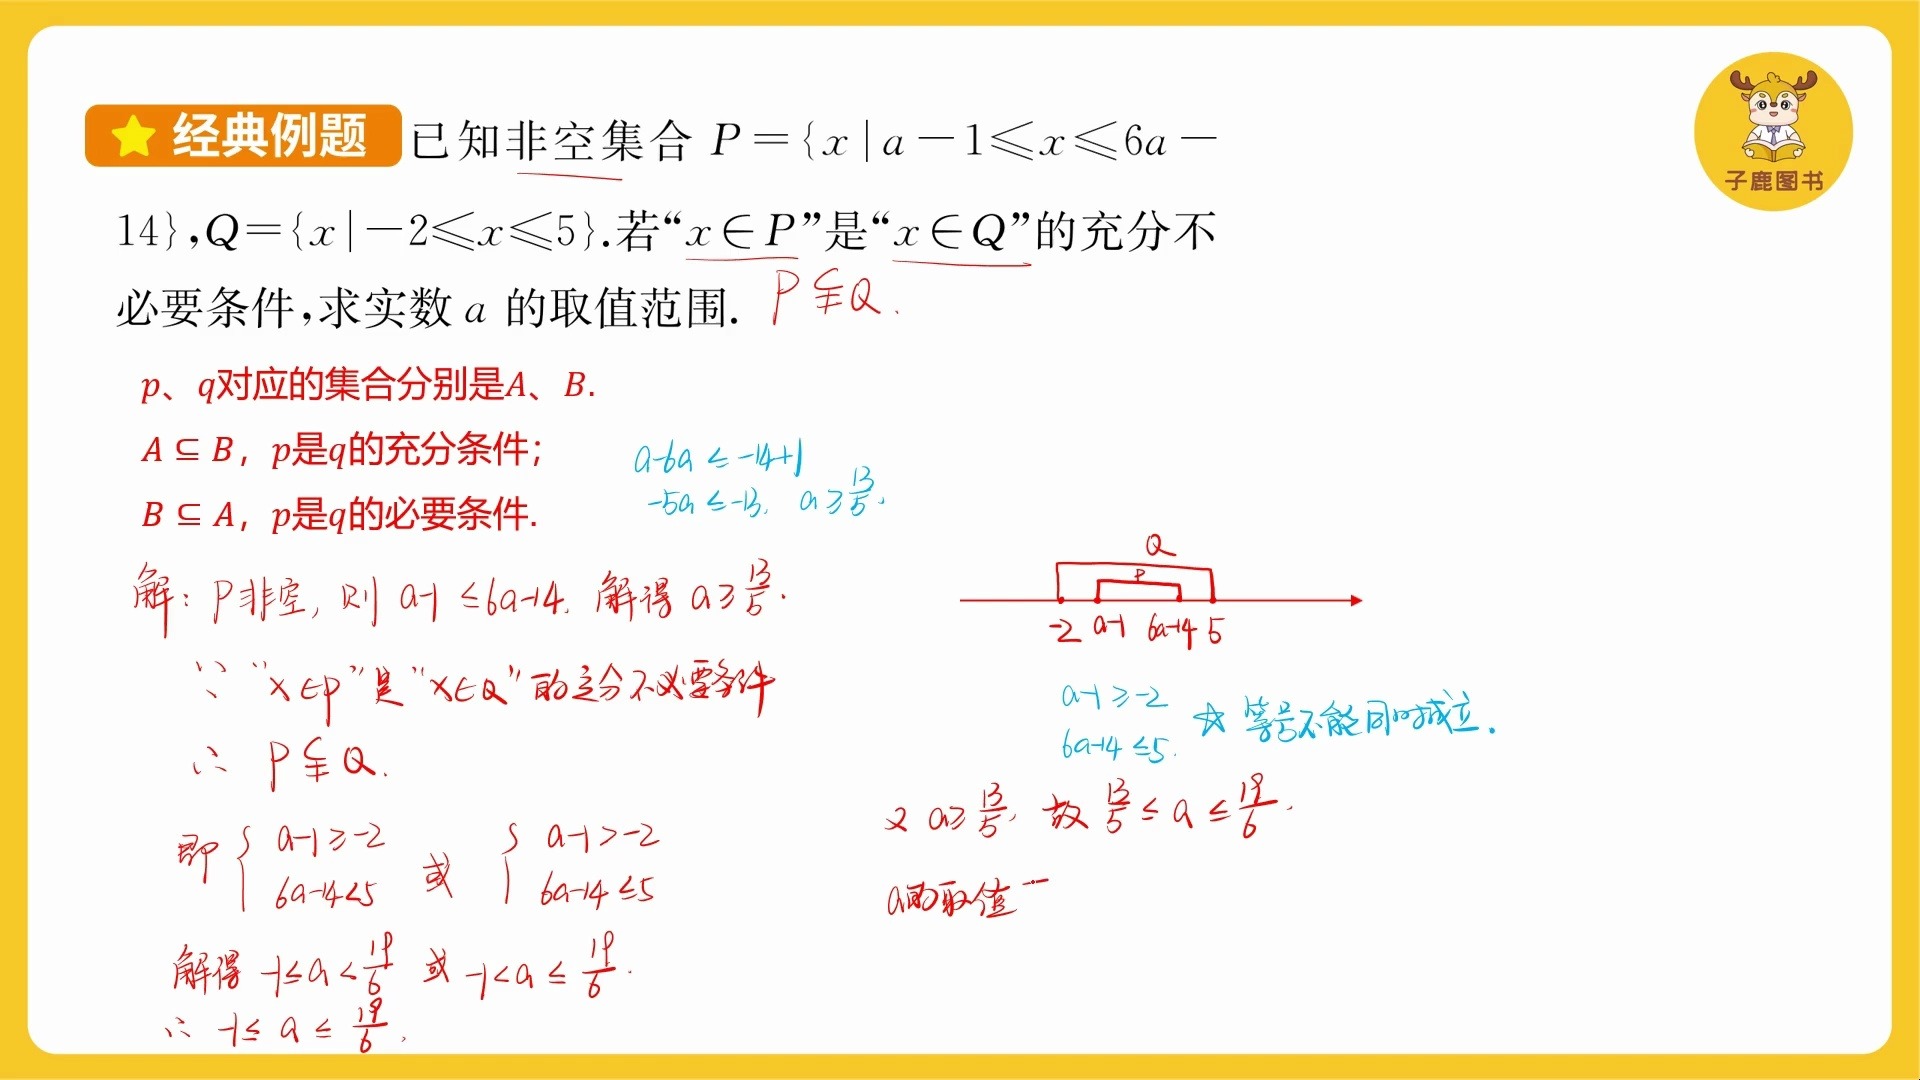 经典例题 已知非空集合 P={x|a-1≤x≤6a-
14},Q={x|-2≤x≤5}.若“x∈P”是“x∈Q”的充分不
必要条件,求实数 a 的取值范围.
P⫋Q.
子鹿图书
p、q对应的集合分别是A、B.
A ⊆ B，p是q的充分条件;
B ⊆ A，p是q的必要条件.
a-6a ≤ -14+1
-5a ≤ -13, a ≥ 13/5.
解: P非空, 则 a-1 ≤ 6a-14, 解得 a ≥ 13/5.
∵ "x∈P"是"x∈Q"的充分不必要条件
∴ P⫋Q.
即 { a-1 ≥ -2 或 { a-1 > -2
6a-14 < 5 6a-14 ≤ 5
解得 -1 ≤ a < 19/6 或 -1 < a ≤ 19/6.
∴ -1 ≤ a ≤ 19/6.
Q
P
-2 a-1 6a-14 5
a-1 ≥ -2
6a-14 ≤ 5.
☆ 等号不能同时成立.
又 a ≥ 13/5, 故 13/5 ≤ a ≤ 19/6.
a的取值…